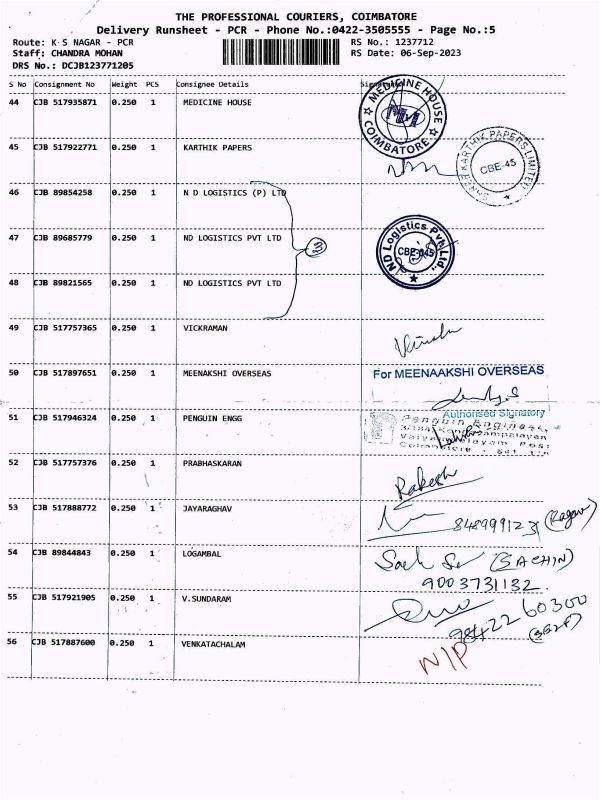 THE PROFESSIONAL COURIERS, COIMBATORE
Delivery Runsheet - PCR - Phone No.:0422-3505555 - Page No.:5
Route: K S NAGAR - PCR RS No.: 1237712
Staff: CHANDRA MOHAN RS Date: 06-Sep-2023
DRS No.: DCJB123771205
S No Consignment No Weight PCS Consignee Details
44 CJB 517935871 0.250 1 MEDICINE HOUSE
MEDICINE HOUSE COIMBATORE
45 CJB 517922771 0.250 1 KARTHIK PAPERS
KARTHIK PAPERS LIMITED CBE-45
46 CJB 89854258 0.250 1 N D LOGISTICS (P) LTD
47 CJB 89685779 0.250 1 ND LOGISTICS PVT LTD
ND Logistics Pvt. Ltd., CBE-045
48 CJB 89821565 0.250 1 ND LOGISTICS PVT LTD
49 CJB 517757365 0.250 1 VICKRAMAN
50 CJB 517897651 0.250 1 MEENAKSHI OVERSEAS
For MEENAAKSHI OVERSEAS
Authorised Signatory
51 CJB 517946324 0.250 1 PENGUIN ENGG
Penguin Engineers,
52 CJB 517757376 0.250 1 PRABHASKARAN
Rakesh
53 CJB 517888772 0.250 1 JAYARAGHAV
54 CJB 89844843 0.250 1 LOGAMBAL
(SACHIN)
9003731132
55 CJB 517921905 0.250 1 V.SUNDARAM
9842260300
56 CJB 517887600 0.250 1 VENKATACHALAM
N/P